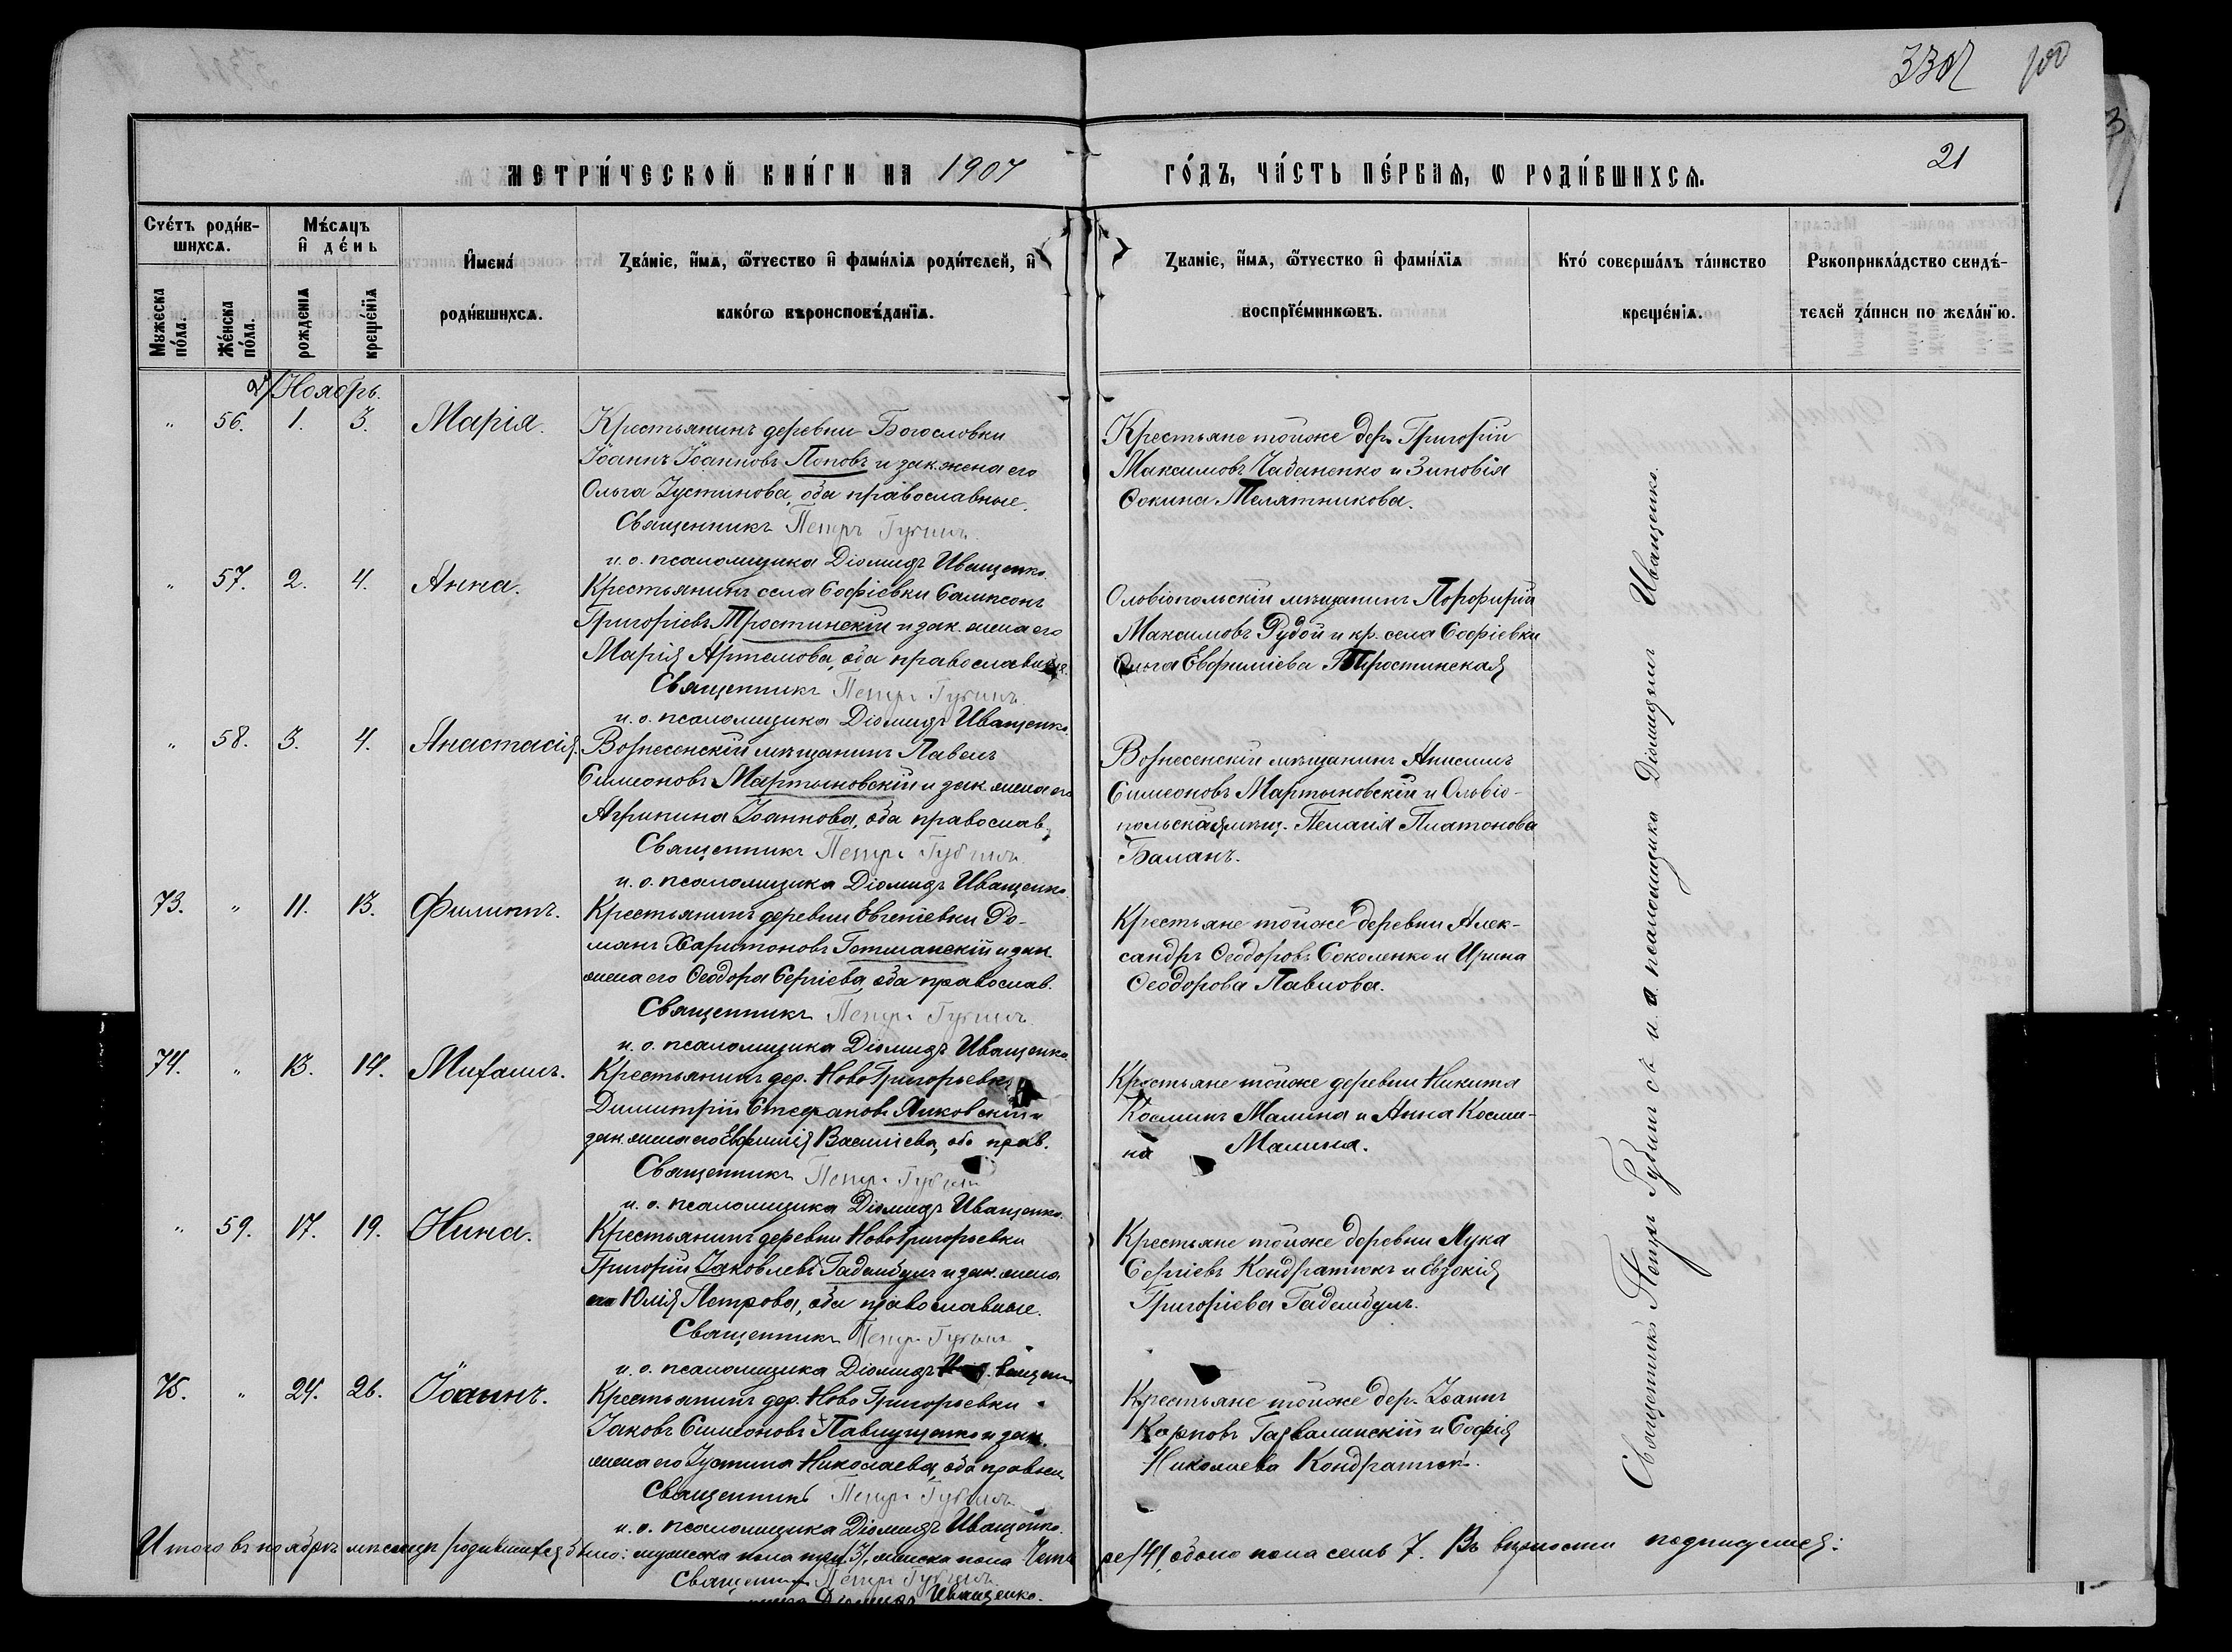 3307 100
МЕТРИ́ЧЕСКОЙ КНИ́ГИ НА 1907 ГО́ДЪ, ЧА́СТЬ ПЕ́РВАѦ, Ѡ РОДИ́ВШИХСѦ.
21
Сче́тъ роди́в-
шихсѧ.
Мѣ́сѧцъ
и҆ де́нь
И҆мена́
роди́вшихсѧ.
Зва́ніе, и҆́мѧ, ѻ҆́тчество и҆ фами́лїѧ роди́телей, и҆
како́гѡ вѣроисповѣ́данїѧ.
Зва́ніе, и҆́мѧ, ѻ҆́тчество и҆ фами́лїѧ
воспрїе́мникѡвъ.
Кто́ соверша́лъ та́инство
креще́нїѧ.
Рꙋкоприкла́дство свидѣ́-
телей за́писи по жела́нїю.
Мꙋжеска
по́ла.
Же́нска
по́ла.
рожде́нїѧ
креще́нїѧ
Ноябрь.
" 56. 1. 3. Марія.
Крестьянинъ деревни Богословки
Іоаннъ Іоанновъ Поповъ и зак. жена его
Ольга Іустинова, оба православные.
Священникъ Петръ Губинъ
и. о. псаломщика Діомидъ Иващенко.
Крестьяне тойже дер. Григорій
Максимовъ Чабаненко и Зиновія
Фокина Телятникова.
" 57. 2. 4. Анна.
Крестьянинъ села Софіевки Сампсонъ
Григоріевъ Тростинскій и зак. жена его
Марія Артемова, оба православные.
Священникъ Петръ Губинъ
и. о. псаломщика Діомидъ Иващенко.
Ольвіопольскій мѣщанинъ Порфирій
Максимовъ Рудой и кр. села Софіевки
Ольга Евфиміева Тростинская
" 58. 3. 4. Анастасія.
Вознесенскій мѣщанинъ Павелъ
Симеоновъ Мартыновскій и зак. жена его
Агрипина Іоаннова, оба православ.
Священникъ Петръ Губинъ
и. о. псаломщика Діомидъ Иващенко.
Вознесенскій мѣщанинъ Анисимъ
Симеоновъ Мартыновскій и Ольвіо-
польская мѣщ. Пелагія Платонова
Баланъ.
73. " 11. 13. Филиппъ.
Крестьянинъ деревни Евгеніевки Ро-
манъ Харитоновъ Гетманскій и зак.
жена его Ѳеодора Сергіева, оба православ.
Священникъ Петръ Губинъ
и. о. псаломщика Діомидъ Иващенко.
Крестьяне тойже деревни Алек-
сандръ Ѳеодоровъ Соколенко и Ирина
Ѳеодорова Павлова.
74. " 13. 14. Михаилъ.
Крестьянинъ дер. НовоГригорьевки
Димитрій Стефановъ Янковскій и
зак. жена его Евфимія Васильева, оба прав.
Священникъ Петръ Губинъ
и. о. псаломщика Діомидъ Иващенко.
Крестьяне тойже деревни Никита
Косминъ Малина и Анна Косми-
на Малина.
" 59. 17. 19. Нина.
Крестьянинъ деревни НовоГригорьевки
Григорій Іаковлевъ Гадембулъ и зак. жена
его Юлія Петрова, оба православные.
Священникъ Петръ Губинъ
и. о. псаломщика Діомидъ
Крестьяне тойже деревни Лука
Сергіевъ Кондратюкъ и Евдокія
Григоріева Гадембулъ.
75. " 24. 26. Іоаннъ.
Крестьянинъ дер. Ново Григорьевки
Іаковъ Симеоновъ Павлущенко и зак.
жена его Іустина Николаева, оба правосл.
Священникъ Петръ Губинъ
и. о. псаломщика Діомидъ Иващенко.
Крестьяне тойже дер. Іоаннъ
Карповъ и Софія
Николаева Кондратюкъ.
Священникъ Петръ Губинъ съ и. о. псаломщика Діомидомъ Иващенко.
Итого въ ноябрѣ мѣсяцѣ родившихся было: мужеска пола три /3/, женска пола Четы
ре /4/, обоего пола семь 7. Въ вѣрности подписуемся:
Священникъ Петръ Губинъ
Діомидъ Иващенко.